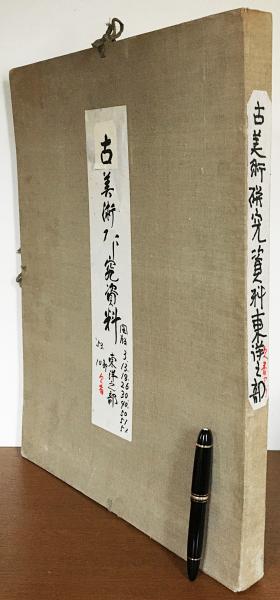 古美術研究資料
圖版 3.13.18.26 30.40.50.51
東洋之部
'53.
古美術研究資料東洋之部